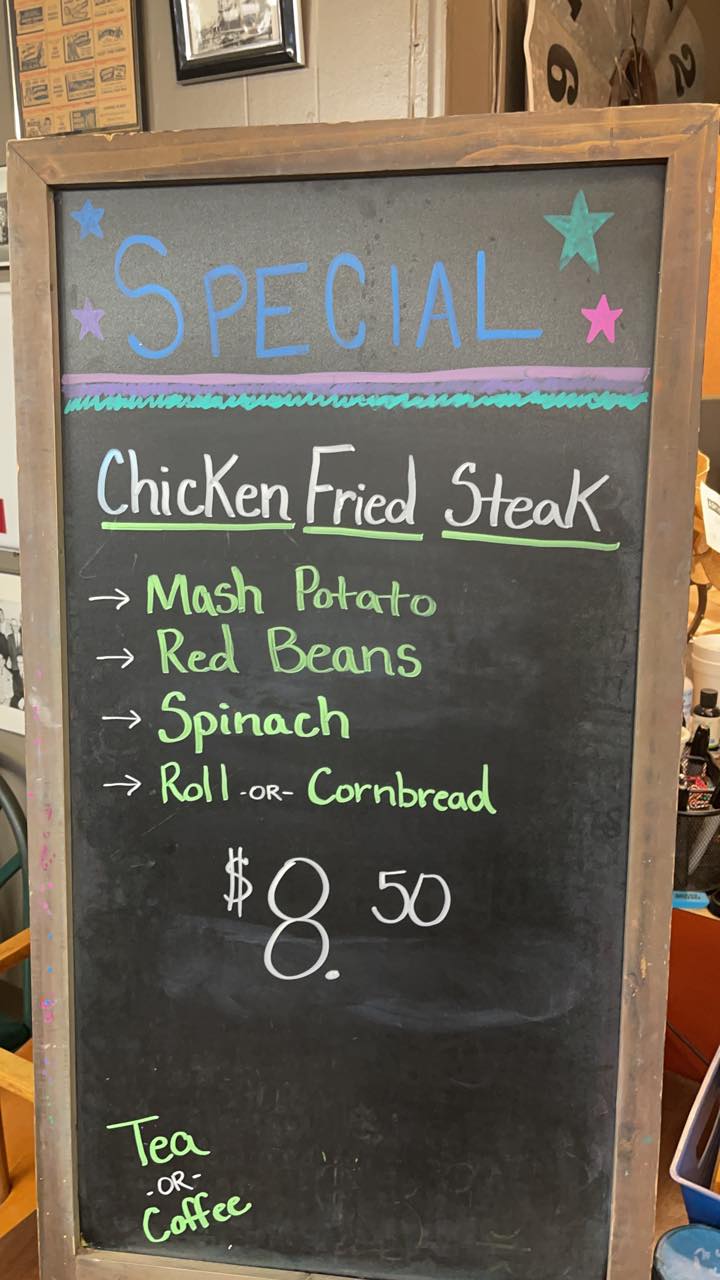 SPECIAL
Chicken Fried Steak
→ Mash Potato
→ Red Beans
→ Spinach
→ Roll -OR- Cornbread
$8.50
Tea
-OR-
Coffee